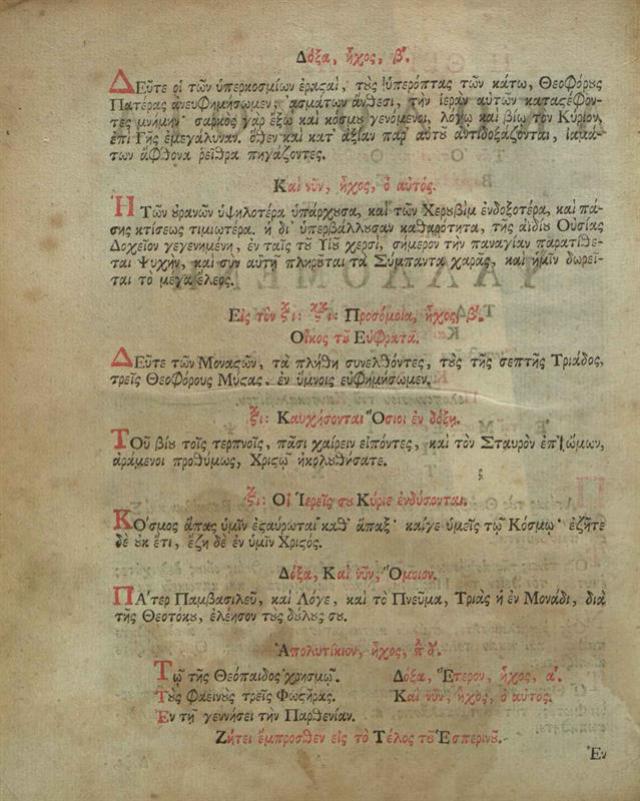 Δόξα, ἦχος, β'.
ΔΕῦτε οἱ τῶν ὑπερκοσμίων ἐραςαὶ, τοὺς ὑπερόπτας τῶν κάτω, Θεοφόρους
Πατέρας ἀνευφημήσωμεν· ἀσμάτων ἄνθεσι, τὴν ἱερὰν αὐτῶν καταςέφον-
τες μνήμην· σαρκὸς γὰρ ἔξω καὶ κόσμου γενόμενοι, λόγῳ καὶ βίῳ τὸν Κύριον,
ἐπὶ Γῆς ἐμεγάλυναν. ὅθεν καὶ κατ' ἀξίαν παρ' αὐτοῦ ἀντιδοξάζονται, ἰαμά-
των ἄφθονα ῥεῖθρα πηγάζοντες.
Καὶ νῦν, ἦχος, ὁ αὐτός.
Ἡ Τῶν οὐρανῶν ὑψηλοτέρα ὑπάρχουσα, καὶ τῶν Χερουβὶμ ἐνδοξοτέρα, καὶ πά-
σης κτίσεως τιμιωτέρα. ἡ δι' ὑπερβάλλουσαν καθαρότητα, τῆς ἀϊδίου Οὐσίας
Δοχεῖον γεγενημένη, ἐν ταῖς τοῦ Υἱοῦ χερσὶ, σήμερον τὴν παναγίαν παρατίθε-
ται Ψυχὴν, καὶ σὺν αὐτῇ πληροῦται τὰ Σύμπαντα χαρᾶς, καὶ ἡμῖν δωρεῖ-
ται τὸ μέγα ἔλεος.
Εἰς τὸν ςίχ: ςιχ: Προσόμοια, ἦχος, β'.
Οἶκος τοῦ Εὐφραθᾶ.
ΔΕῦτε τῶν Μοναςῶν, τὰ πλήθη συνελθόντες, τοὺς τῆς σεπτῆς Τριάδος,
τρεῖς Θεοφόρους Μύςας. ἐν ὕμνοις εὐφημήσωμεν.
ςι: Καυχήσονται Ὅσιοι ἐν δόξῃ.
ΤΟῦ βίου τοῖς τερπνοῖς, πᾶσι χαίρειν εἰπόντες, καὶ τὸν Σταυρὸν ἐπ' ὤμων,
ἀράμενοι προθύμως, Χριςῷ ἠκολουθήσατε.
ςι: Οἱ Ἱερεῖς σου Κύριε ἐνδύσονται.
ΚΟσμος ἅπας ὑμῖν ἐςαύρωται καθ' ἅπαξ· καίγε ὑμεῖς τῷ Κόσμῳ· ἐζῆτε
δὲ οὐκ ἔτι, ἔζη δὲ ἐν ὑμῖν Χριςός.
Δόξα, Καὶ νῦν, Ὅμοιον.
ΠΑ'τερ Παμβασιλεῦ, καὶ Λόγε, καὶ τὸ Πνεῦμα, Τριὰς ἡ ἐν Μονάδι, διὰ
τῆς Θεοτόκου, ἐλέησον τοὺς δούλους σου.
Ἀπολυτίκιον, ἦχος, πλ δ'.
Τῷ τῆς Θεόπαιδος χρησμῷ.
Δόξα, Ἕτερον, ἦχος, α'.
Τοὺς φαεινοὺς τρεῖς Φωςῆρας.
Καὶ νῦν, ἦχος, ὁ αὐτὸς.
Ἐν τῇ γεννήσει τὴν Παρθενίαν.
Ζήτει ἔμπροσθεν εἰς τὸ Τέλος τοῦ Ἑσπερινοῦ.
Ἐν